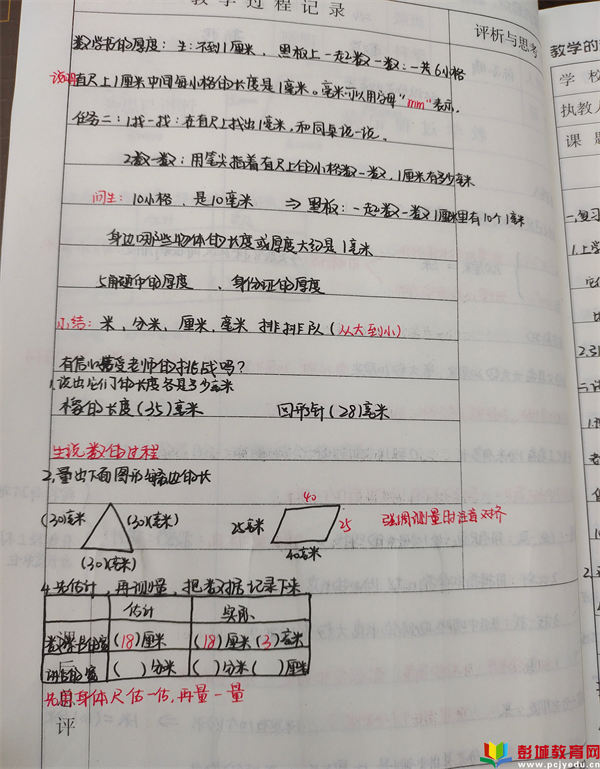 教学过程记录
评析与思考
数学书的厚度：生：不到1厘米，黑板上一起数一数：一共6小格
说明直尺上1厘米中间每小格的长度是1毫米。毫米可以用字母“mm”表示。
任务二：1.找一找：在直尺上找出1毫米，和同桌说一说。
2.数一数：用笔尖指着直尺上的小格数一数，1厘米有多少毫米
问生：10小格，是10毫米 ⇒ 黑板：一起数一数1厘米里有10个1毫米
身边哪些物体的长度或厚度大约是1毫米
5角硬币的厚度、身份证的厚度
小结：米，分米，厘米，毫米 排排队（从大到小）
有信心接受老师的挑战吗？
1.说出它们的长度各是多少毫米
橡的长度（35）毫米 回形针（28）毫米
生说数的过程
2.量出下面图形每条边的长
40
（30）毫米 （30）毫米 25毫米 25 强调测量时注意对齐
（30）毫米 40毫米
4.先估计，再测量，把数据记录下来
估计 实际
数学书的宽 （18）厘米 （18）厘米（3）毫米
课
后
的宽 （ ）分米 （ ）分米（ ）厘米
先用身体尺估一估，再量一量
评
教学的
学校
执教人
课题
一.复习
1.上学
2.引
彭城教育网
www.pcjyedu.cn